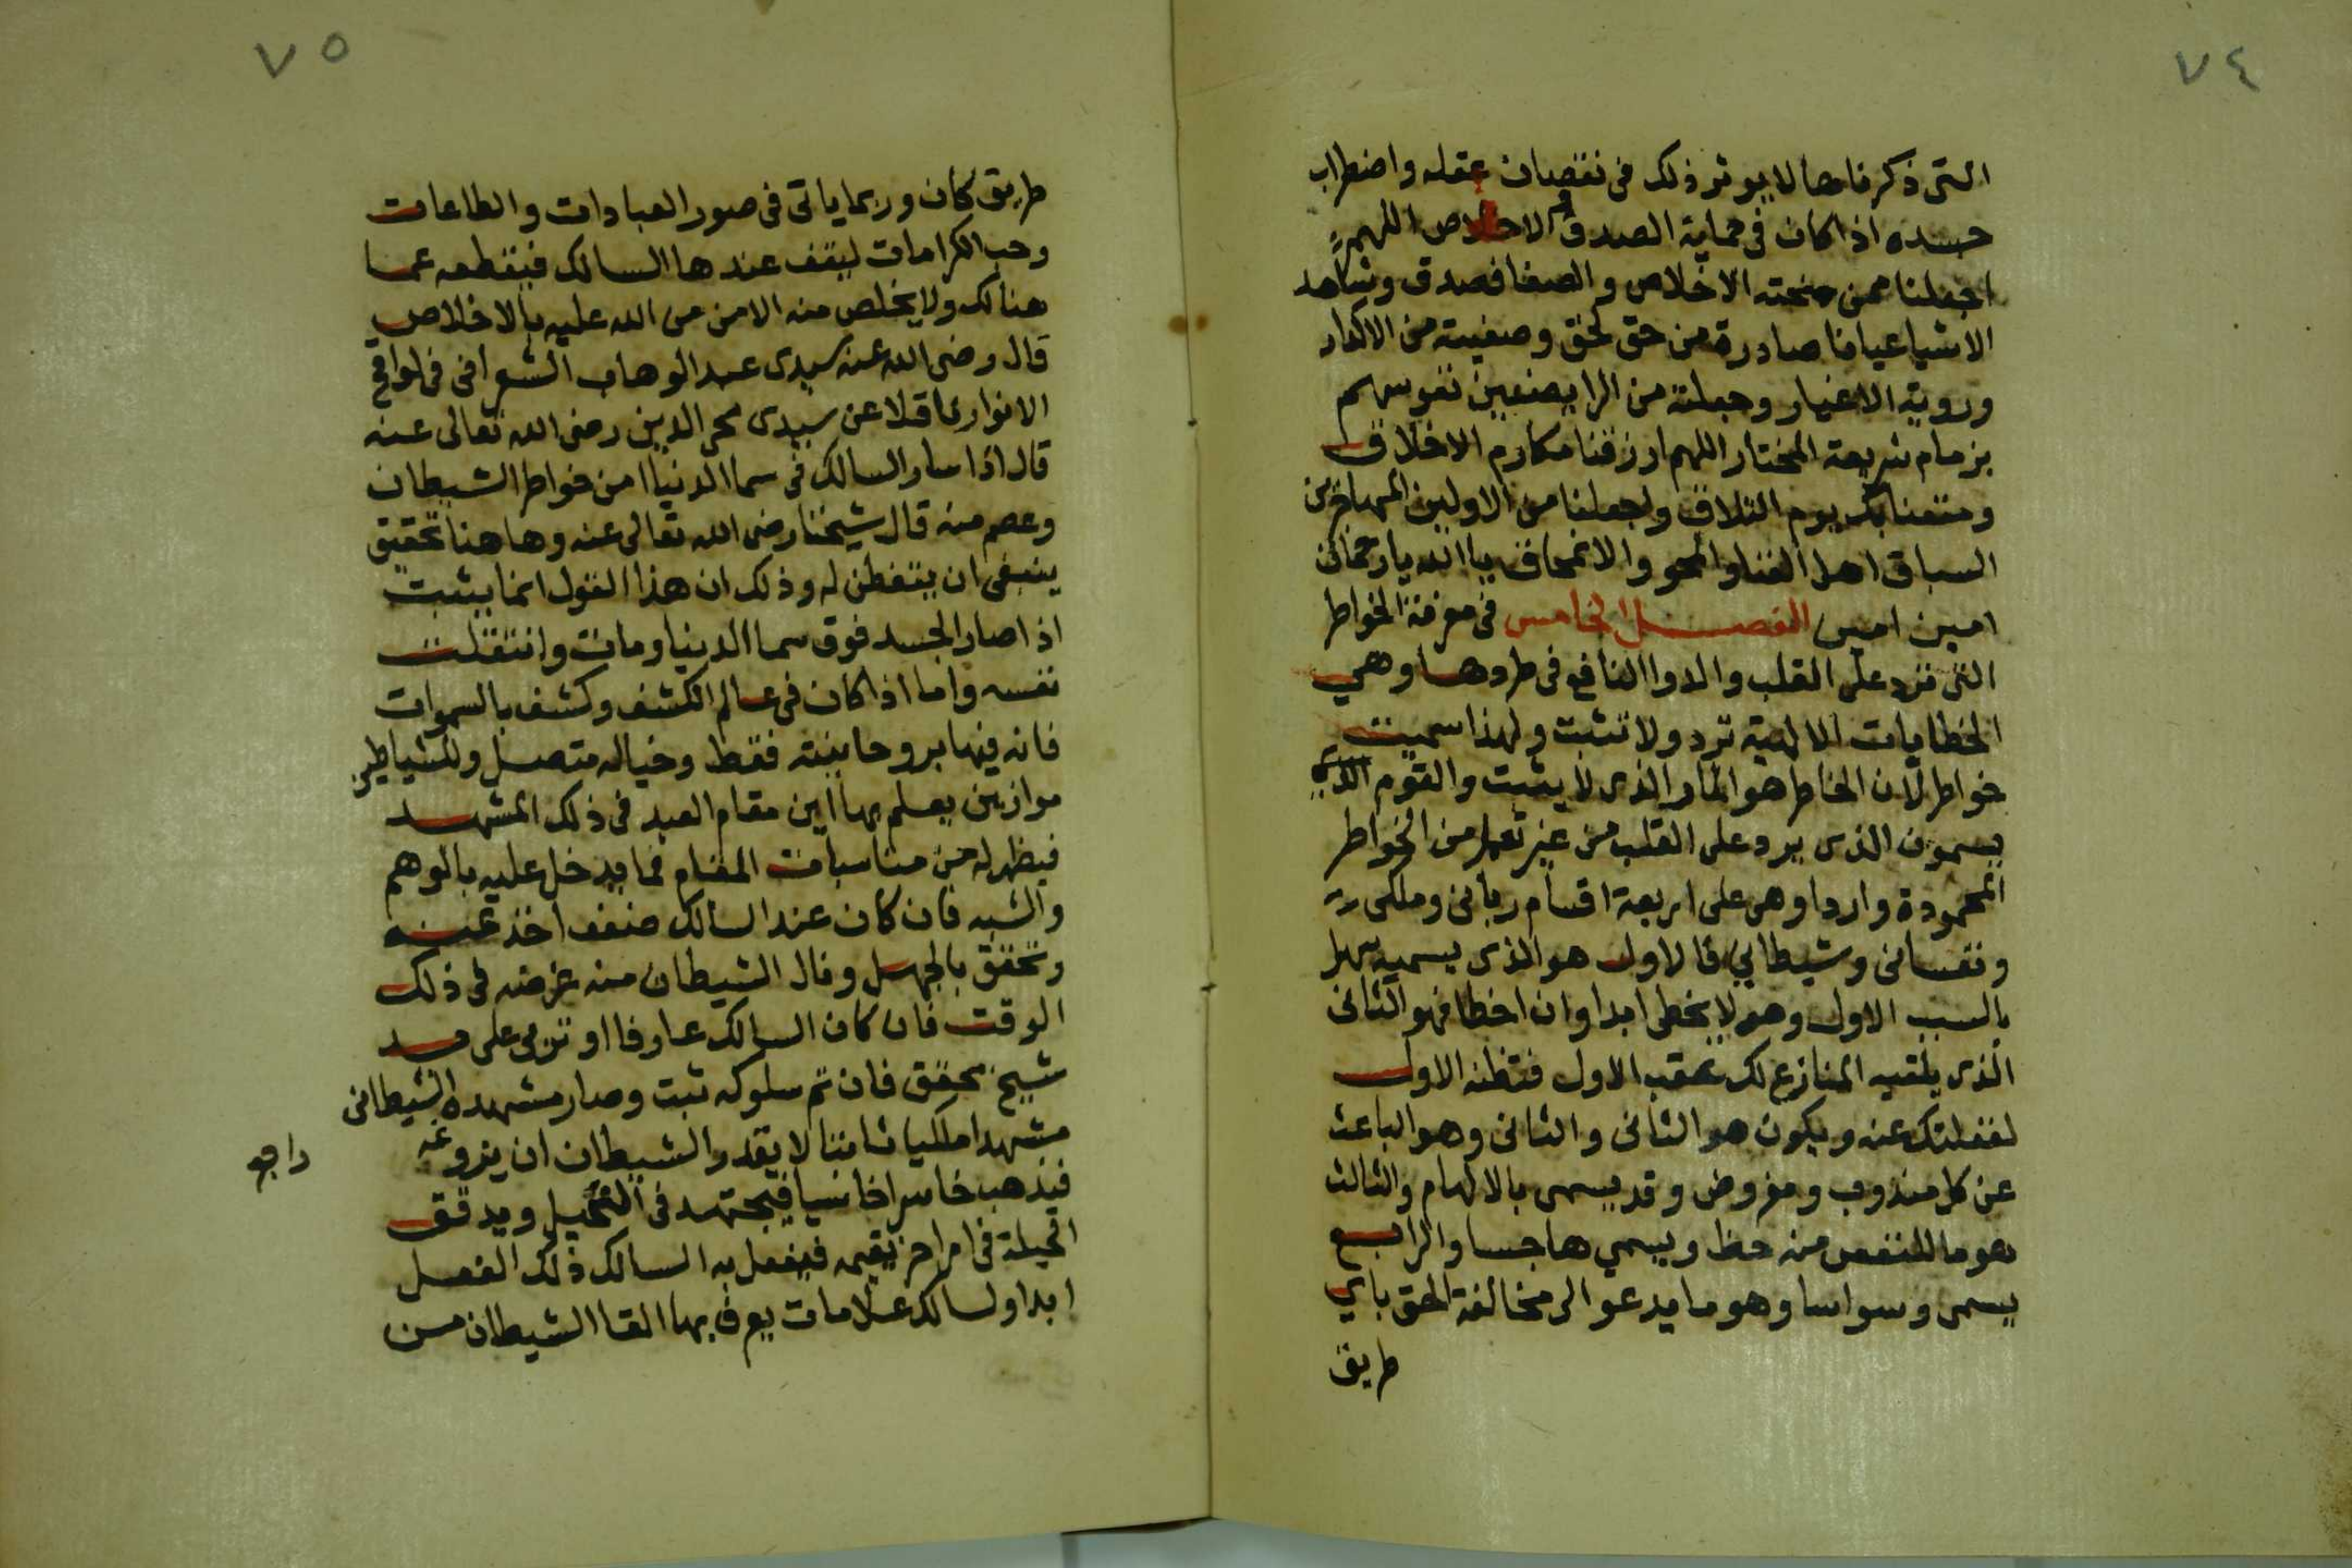 ٧٤
التى ذكرناها لا يوثر ذلك فى نقصان عقله واضطراب
جسده اذا كان فى حماية الصدق والاخلاص اللهم
اجعلنا ممن منحته الاخلاص والصفا فصدق وشاهد
الاشيا عيانا صادرة من حق لحق وصفيته من الاكدار
وروية الاغيار وجعلته من الرايضين نفوسهم
بزمام شريعة المختار اللهم ارزقنا مكارم الاخلاق
ومتعنا بك يوم التلاق واجعلنا من الاولين المهاجرين
السباق اهل الفنا والمحو والانمحاق يا الله يا رحمان
امين امين الفصل الخامس فى معرفة الخواطر
التى ترد على القلب والدوا النافع فى طردها وهي
الخطابات الالهية ترد ولا تثبت ولهذا سميت
خواطر لان الخاطر هو المار الذى لا يثبت والقوم الذي
يسمون الذى يرد على القلب من غير تعمل من الخواطر
المحمودة واردا وهى على اربعة اقسام ربانى وملكى
ونفسانى وشيطاني فالاول هو الذى يسميه سهل
بالسبب الاول وهو لا يخطى ابدا وان اخطا فهو الثانى
الذى يلقيه المنازع لك عقب الاول فتظنه الاول
لغفلتك عنه ويكون هو الثانى والثانى وهو الباعث
عن كل مندوب ومفروض وقد يسمى بالالهام والثالث
هو ما للنفس منه حظ ويسمي هاجسا والرابع
يسمى وسواسا وهو ما يدعو الى مخالفة الحق باي
طريق
٧٥
طريق كان وربما ياتى فى صور العبادات والطاعات
وحب الكرامات ليقف عندها السالك فيقطعه عما
هنالك ولا يخلص منه الا من من الله عليه بالاخلاص
قال رضى الله عنه سيدى عبد الوهاب الشعرانى فى لواقح
الانوار ناقلا عن سيدى محى الدين رضى الله تعالى عنه
قال اذا سار السالك فى سما الدنيا امن خواطر الشيطان
وعصم منه قال شيخنا رضى الله تعالى عنه وها هنا تحقيق
ينبغى ان يتفطن له وذلك ان هذا القول انما يثبت
اذا صار الجسد فوق سما الدنيا ومات وانتقلت
نفسه واما اذا كان فى عالم الكشف وكشف بالسموات
فانه فيها بروحانيته فقط وخياله متصل وللشياطين
موازين يعلم بها اين مقام العبد فى ذلك المشهد
فيظهر له من مناسبات المقام فما يدخل عليه بالوهم
والشبه فان كان عند السالك ضعف اخذ عنه
وتحقق بالجهل ونال الشيطان منه غرضه فى ذلك
الوقت فان كان السالك عارفا او تربى على يد
شيخ محقق فان ثم سلوكه ثبت وصار مشهده الشيطانى
مشهدا ملكيا ثابتا لا يقدر الشيطان ان يزوغه
فيذهب خاسرا خاسيا فيجتهد فى التخيل ويدقق
الحيلة فى امر اخر يقيمه فيفعل به السالك ذلك الفعل
ابدا ولسالك علامات يعرف بها القا الشيطان من